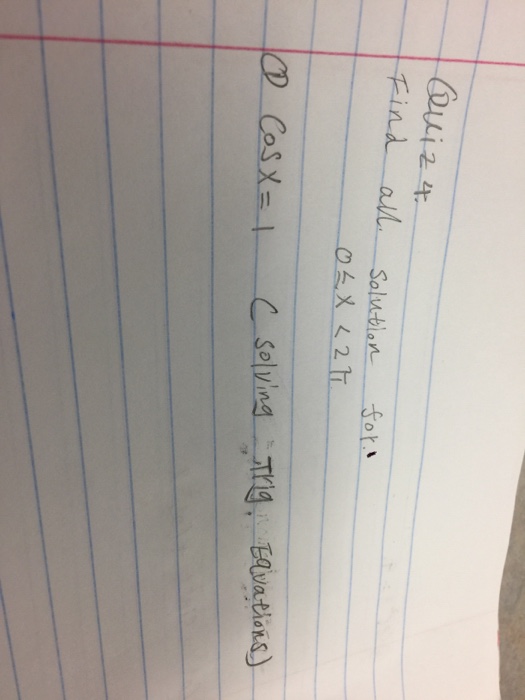 Quiz 4.
Find all solution for:
0 ≤ x < 2π
① Cos x = 1 (solving Trig. Equations)